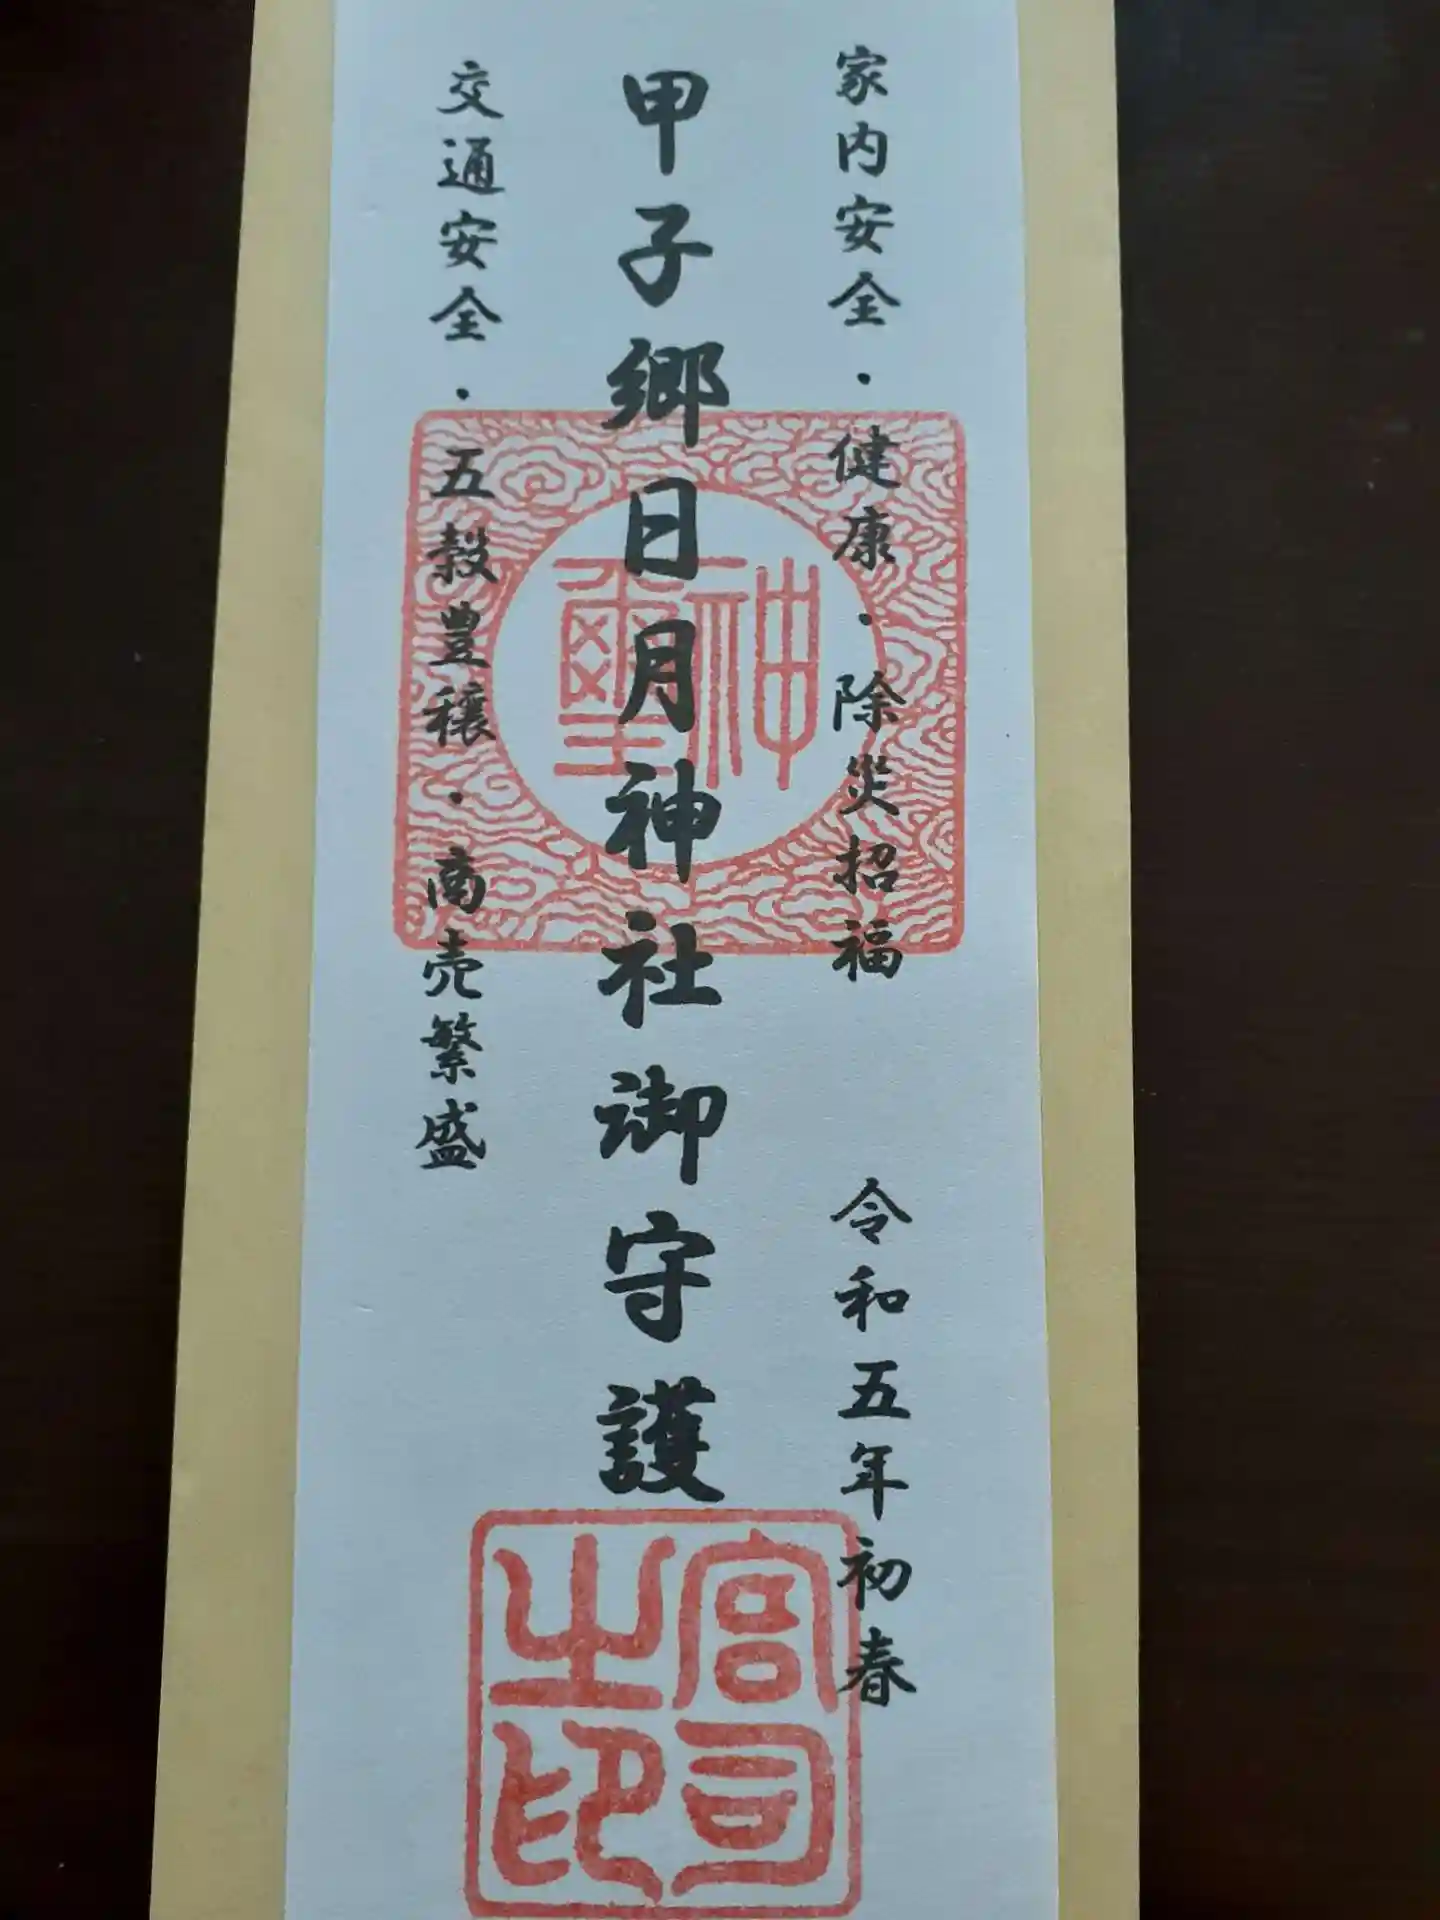 家内安全・健康・除災招福 令和五年初春
甲子郷日月神社御守護
交通安全・五穀豊穣・商売繁盛
神璽
宮司之印